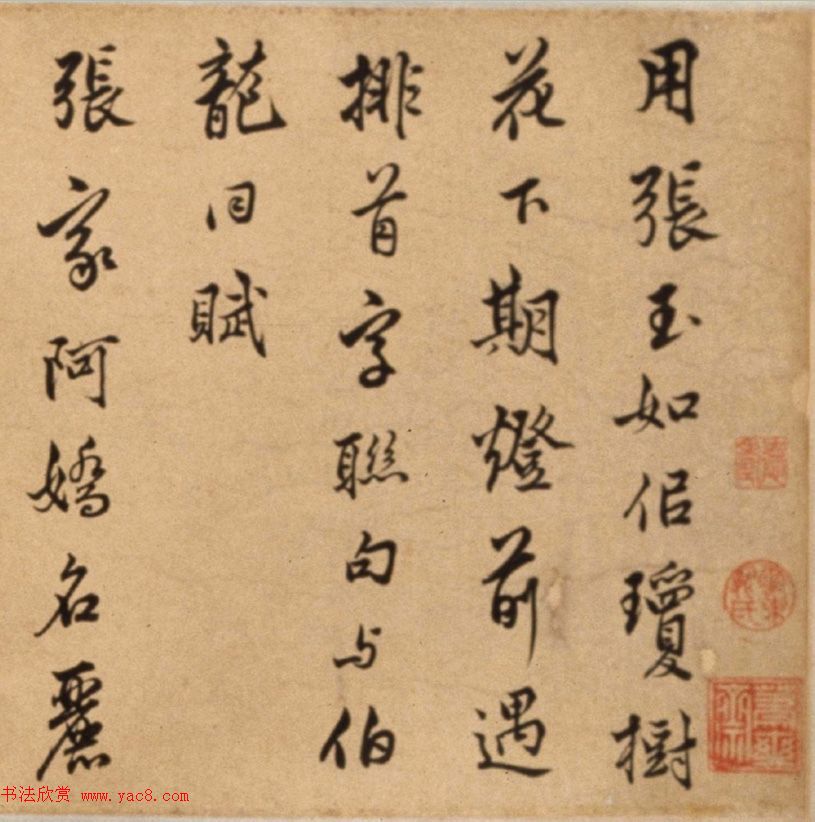 用張玉如佀瓊樹
花下期燈前遇
排首字聯句与伯
龍同賦
張家阿嬌名麗
书法欣赏 www.yac8.com